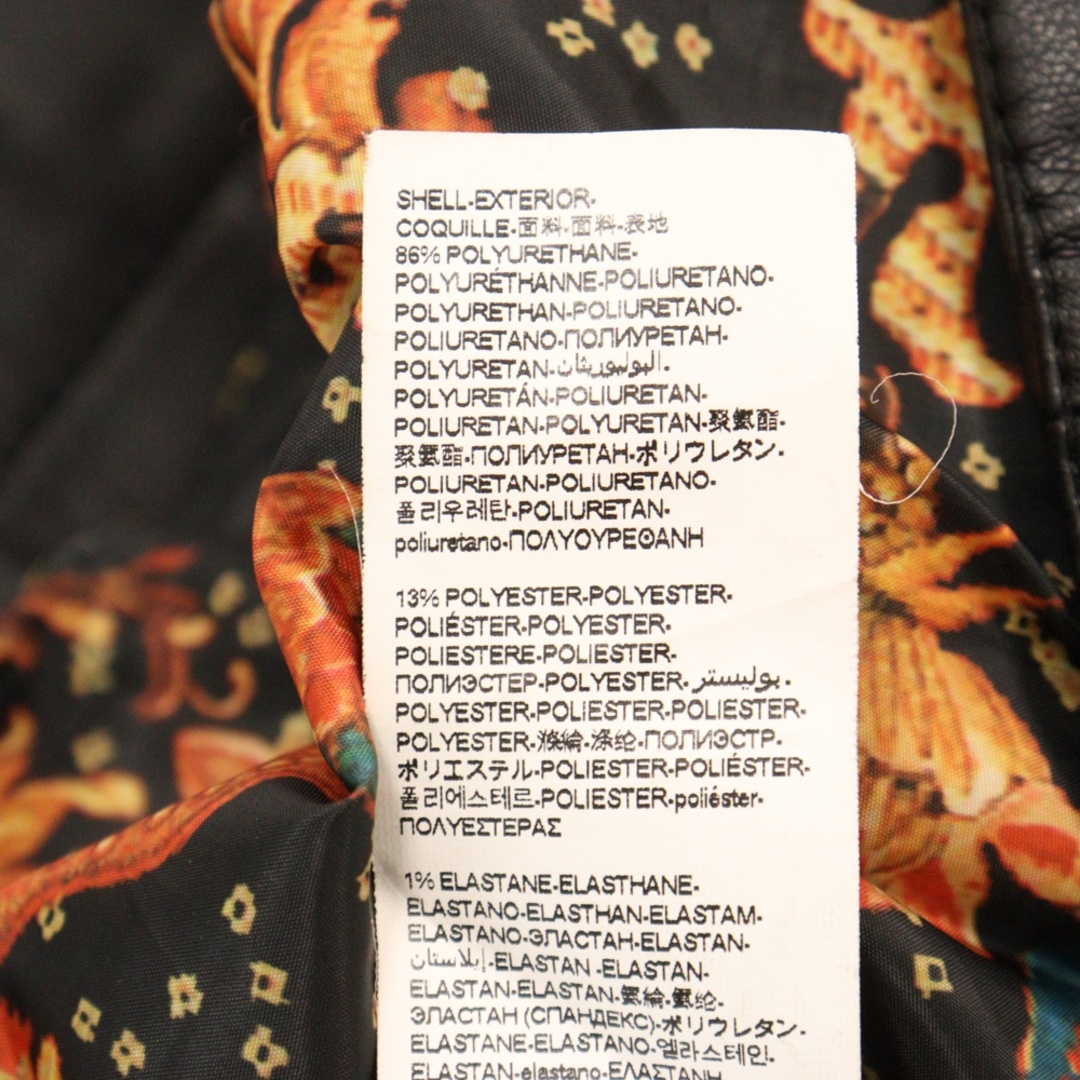 SHELL-EXTERIOR-
COQUILLE-面料-面料-表地
86% POLYURETHANE-
POLYURÉTHANNE-POLIURETANO-
POLYURETHAN-POLIURETANO-
POLIURETANO-ПОЛИУРЕТАН-
POLYURETAN-
POLYURETÁN-POLIURETAN-
POLIURETAN-POLYURETAN-聚氨酯-
聚氨酯-ПОЛИУРЕТАН-ポリウレタン-
POLIURETAN-POLIURETANO-
폴리우레탄-POLIURETAN-
poliuretano-ΠΟΛΥΟΥΡΕΘΑΝΗ
13% POLYESTER-POLYESTER-
POLIÉSTER-POLYESTER-
POLIESTERE-POLIESTER-
ПОЛИЭСТЕР-POLYESTER-بوليستر-
POLYESTER-POLIESTER-POLIESTER-
POLYESTER-滌綸-涤纶-ПОЛИЭСТР-
ポリエステル-POLIESTER-POLIÉSTER-
폴리에스테르-POLIESTER-poliéster-
ΠΟΛΥΕΣΤΕΡΑΣ
1% ELASTANE-ELASTHANE-
ELASTANO-ELASTHAN-ELASTAM-
ELASTANO-ЭЛАСТАН-ELASTAN-
إيلاستان-ELASTAN -ELASTAN-
ELASTAN-ELASTAN-氨綸-氨纶-
ЭЛАСТАН (СПАНДЕКС)-ポリウレタン-
ELASTANE-ELASTANO-엘라스테인-
ELASTAN-elastano-ΕΛΑΣΤΑΝΗ